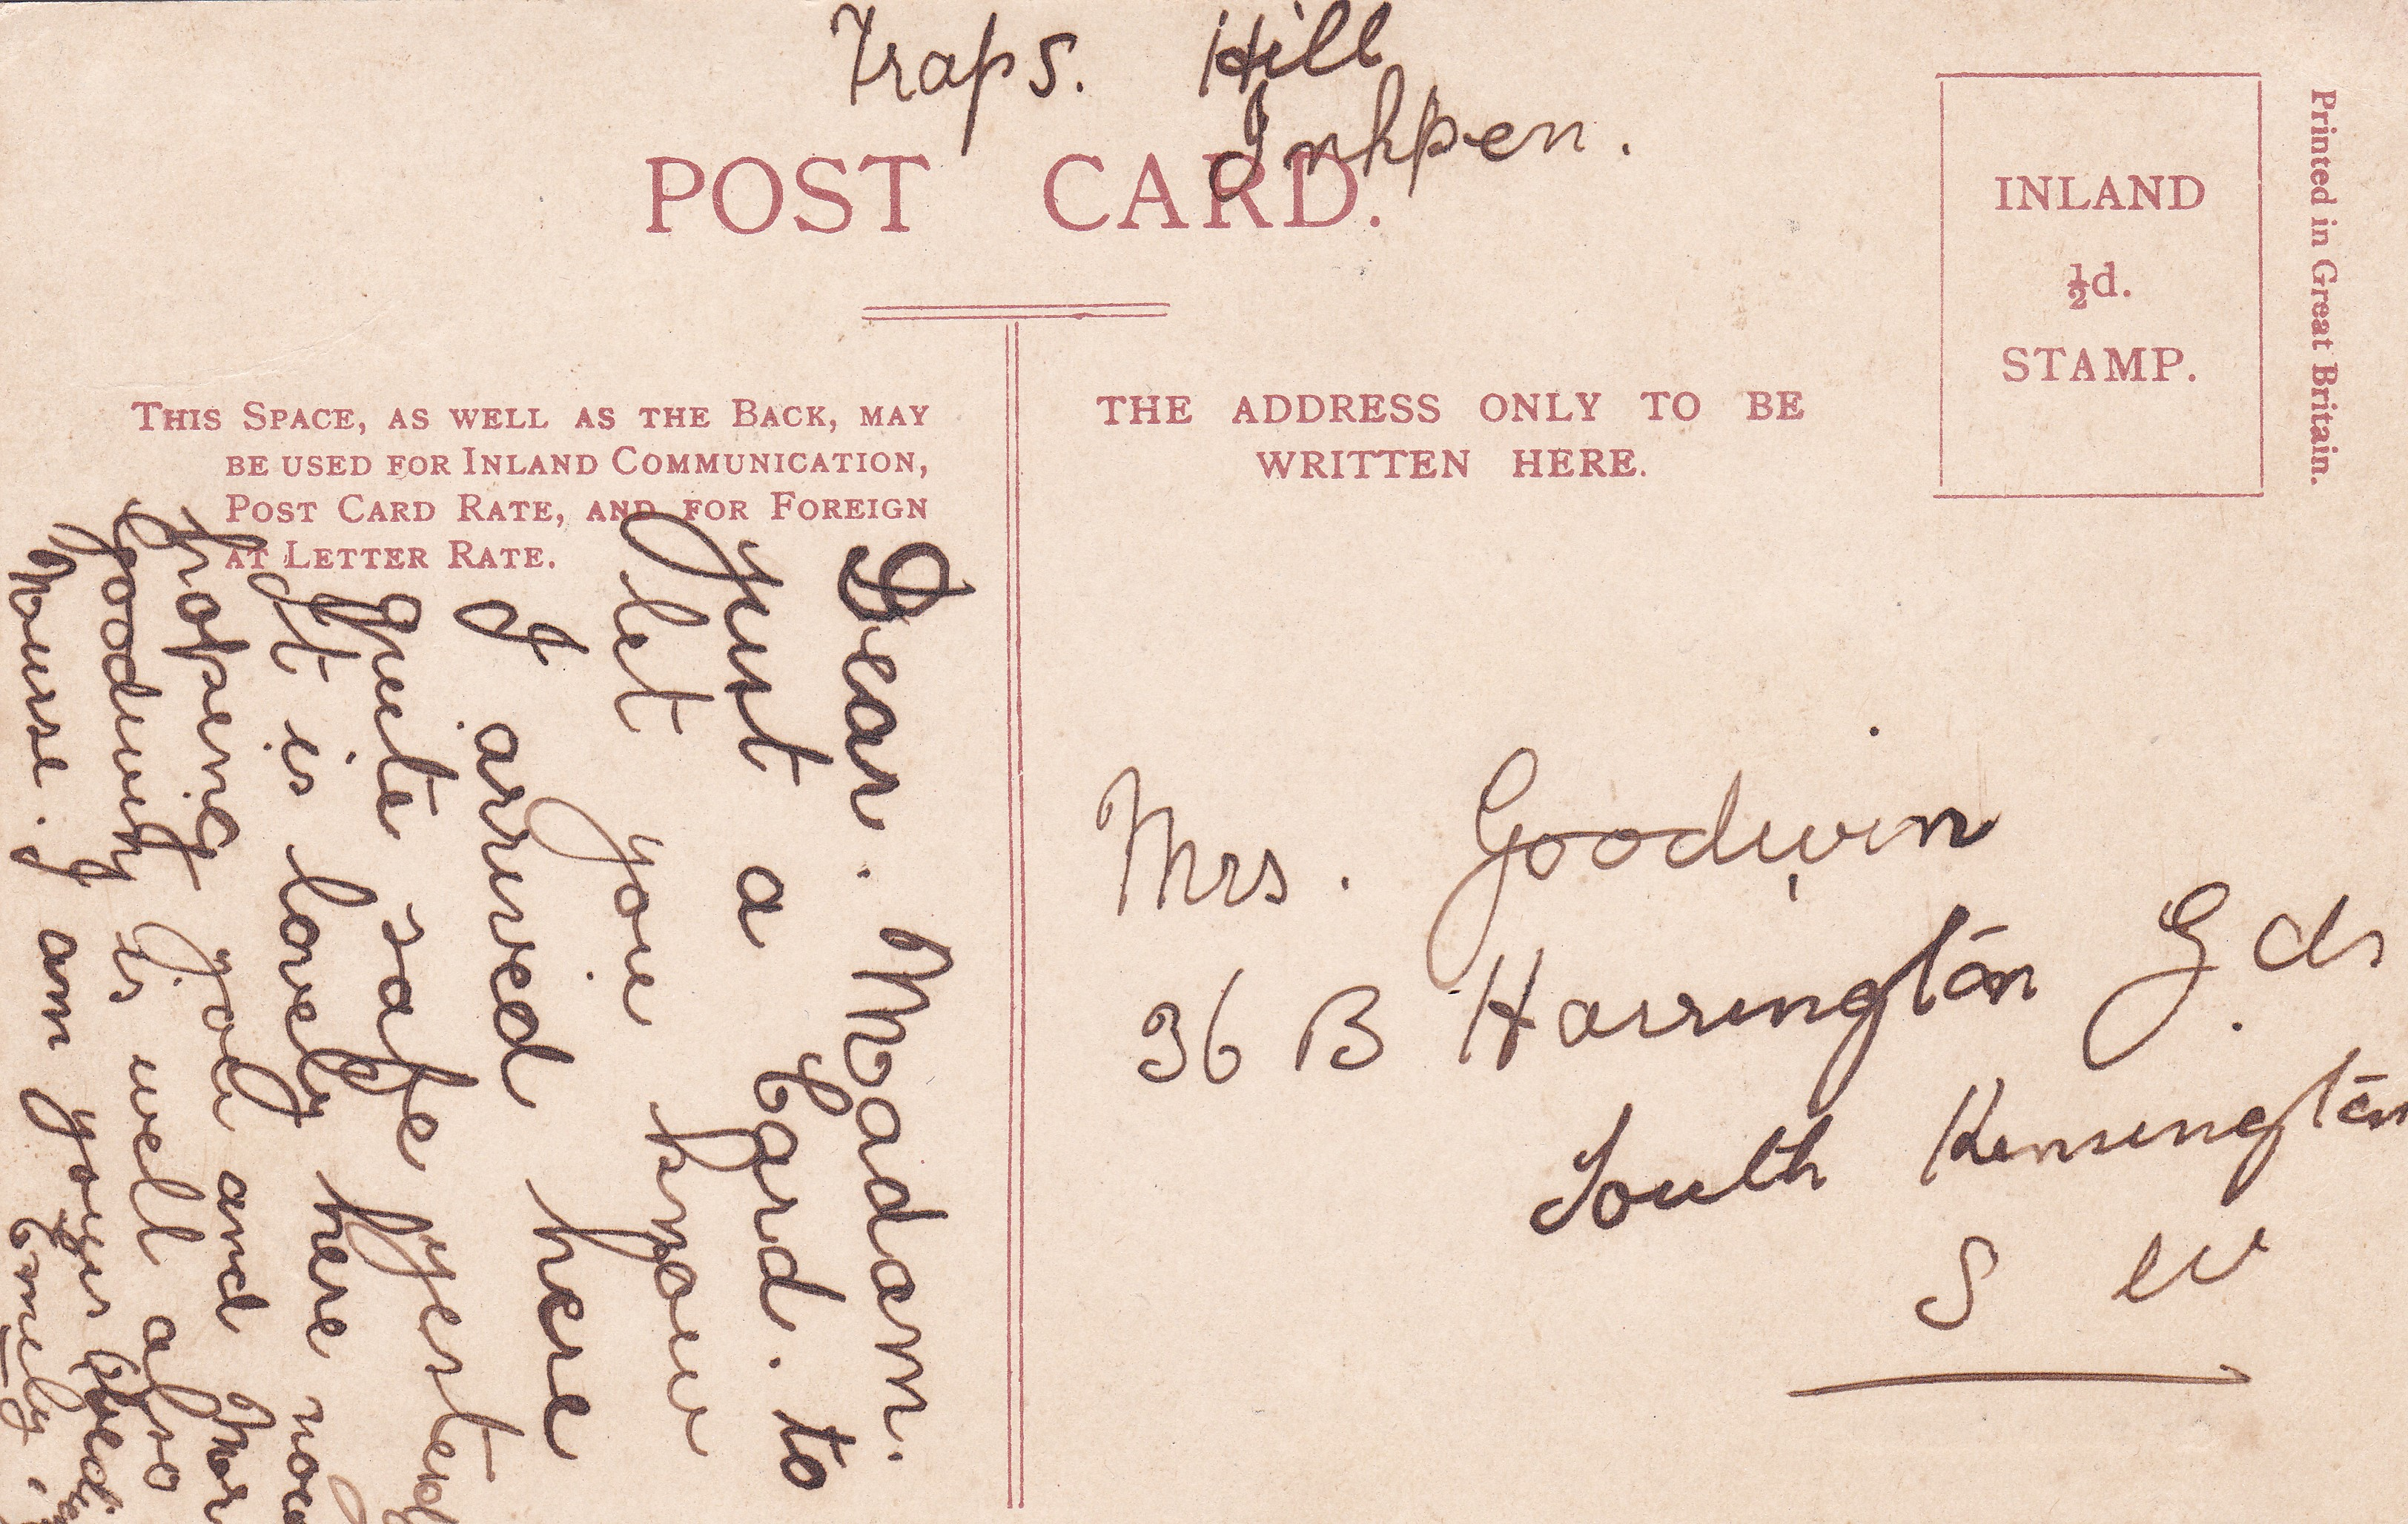 Traps. Hill
Inkpen.
POST CARD.
INLAND
½d.
STAMP.
Printed in Great Britain.
THIS SPACE, AS WELL AS THE BACK, MAY
BE USED FOR INLAND COMMUNICATION,
POST CARD RATE, AND FOR FOREIGN
AT LETTER RATE.
THE ADDRESS ONLY TO BE
WRITTEN HERE.
Dear. Madam.
Just a Card. to
let you know
I arrived here
Quite safe yesterd
It is lovely here now
hopeing you and Mr
goodwin is well also
Nurse. I am yours
Emely
Mrs. Goodwin
36 B Harrington Gds.
South Kensington
S W